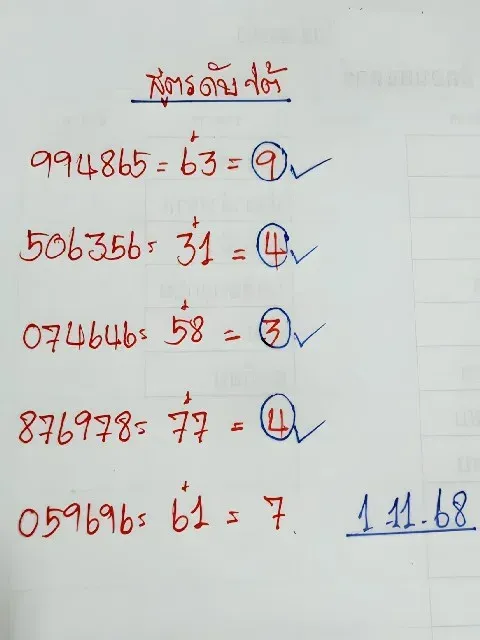 สูตรดับ ใต้
994865 = 6+3 = 9 ✓
506356 = 3+1 = 4 ✓
074646 = 5+8 = 3 ✓
876978 = 7+7 = 4 ✓
059696 = 6+1 = 7
1.11.68